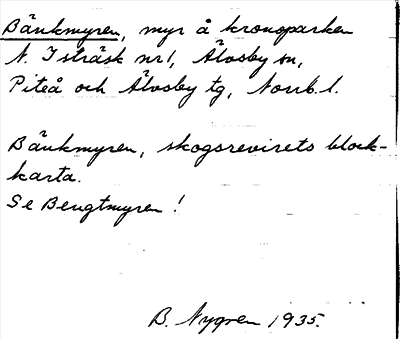 Bänkmyren, myr å kronoparken
N. Isträsk nr 1, Älvsby sn,
Piteå och Älvsby tg, Norrb. l.
Bänkmyren, skogsrevirets block-
karta.
Se Bengtmyren!
B. Nygren 1935.